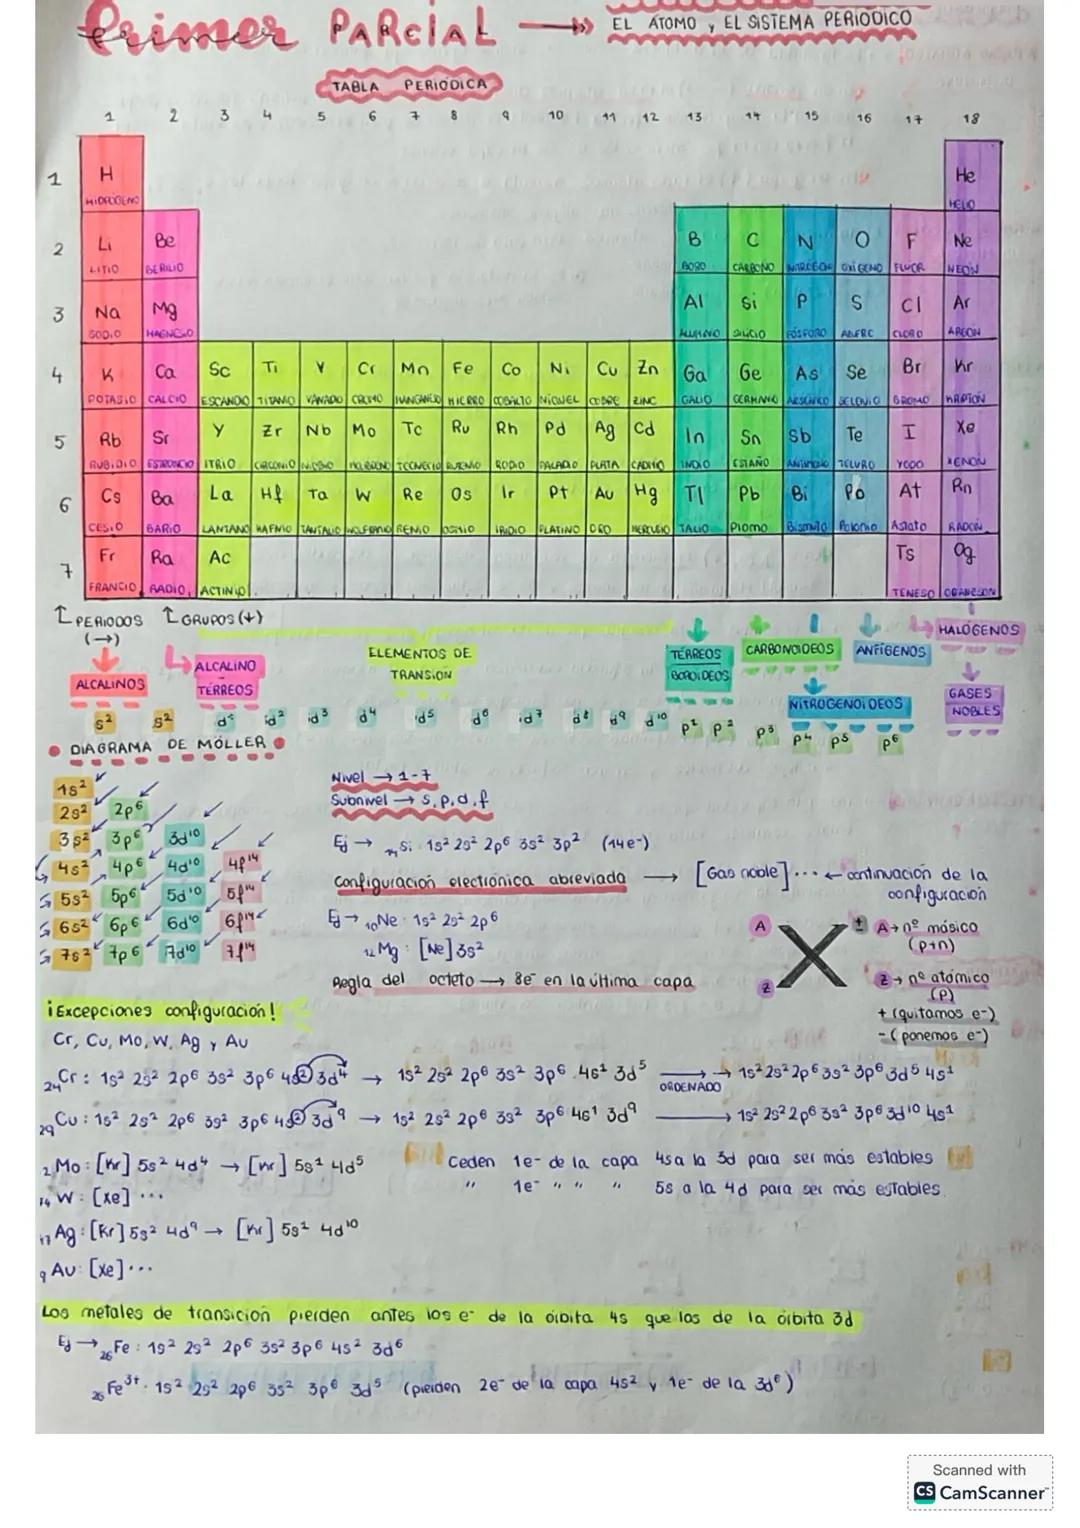 Primer PARCIAL → EL ÁTOMO y EL SISTEMA PERIÓDICO
TABLA PERIÓDICA
1 2 3 4 5 6 7 8 9 10 11 12 13 14 15 16 17 18
1 H He
HIDRÓGENO HELIO
2 Li Be B C N O F Ne
LITIO BERILIO BORO CARBONO NITRÓGENO OXÍGENO FLUOR NEÓN
3 Na Mg Al Si P S Cl Ar
SODIO MAGNESIO ALUMINIO SILICIO FÓSFORO AZUFRE CLORO ARGÓN
4 K Ca Sc Ti V Cr Mn Fe Co Ni Cu Zn Ga Ge As Se Br Kr
POTASIO CALCIO ESCANDIO TITANIO VANADIO CROMO MANGANESO HIERRO COBALTO NÍQUEL COBRE ZINC GALIO GERMANIO ARSÉNICO SELENIO BROMO KRIPTÓN
5 Rb Sr Y Zr Nb Mo Tc Ru Rh Pd Ag Cd In Sn Sb Te I Xe
RUBIDIO ESTRONCIO ITRIO CIRCONIO NIOBIO MOLIBDENO TECNECIO RUTENIO RODIO PALADIO PLATA CADMIO INDIO ESTAÑO Antimonio TELURO YODO XENÓN
6 Cs Ba La Hf Ta W Re Os Ir Pt Au Hg Tl Pb Bi Po At Rn
CESIO BARIO LANTANO HAFNIO TANTALIO WOLFRAMIO RENIO OSMIO IRIDIO PLATINO ORO MERCURIO TALIO Plomo Bismuto Polonio Astato RADÓN
7 Fr Ra Ac Ts Og
FRANCIO RADIO ACTINIO TENESO OGANESÓN
PERIODOS (→) GRUPOS (↓)
ALCALINOS
ALCALINO TÉRREOS
ELEMENTOS DE TRANSIÓN
TÉRREOS BOROIDEOS
CARBONOIDEOS
ANFÍGENOS
HALÓGENOS
NITROGENOIDEOS
GASES NOBLES
s² s² d¹ d² d³ d⁴ d⁵ d⁶ d⁷ d⁸ d⁹ d¹⁰ p¹ p² p³ p⁴ p⁵ p⁶
DIAGRAMA DE MÖLLER
1s²
2s² 2p⁶
3s² 3p⁶ 3d¹⁰
4s² 4p⁶ 4d¹⁰ 4f¹⁴
5s² 5p⁶ 5d¹⁰ 5f¹⁴
6s² 6p⁶ 6d¹⁰ 6f¹⁴
7s² 7p⁶ 7d¹⁰ 7f¹⁴
Nivel → 1-7
Subnivel → s, p, d, f
Ej → ₁₄Si: 1s² 2s² 2p⁶ 3s² 3p² (14e-)
Configuración electrónica abreviada → [Gas noble]... ← continuación de la configuración
Ej → ₁₀Ne: 1s² 2s² 2p⁶
₁₂Mg: [Ne] 3s²
Regla del octeto → 8e⁻ en la última capa
A
X
Z
±
A → nº másico (p+n)
Z → nº atómico (p)
+ (quitamos e-)
- (ponemos e-)
¡Excepciones configuración!
Cr, Cu, Mo, W, Ag y Au
₂₄Cr: 1s² 2s² 2p⁶ 3s² 3p⁶ 4s② 3d⁴ → 1s² 2s² 2p⁶ 3s² 3p⁶ 4s¹ 3d⁵ → ORDENADO → 1s² 2s² 2p⁶ 3s² 3p⁶ 3d⁵ 4s¹
₂₉Cu: 1s² 2s² 2p⁶ 3s² 3p⁶ 4s② 3d⁹ → 1s² 2s² 2p⁶ 3s² 3p⁶ 4s¹ 3d⁹ → 1s² 2s² 2p⁶ 3s² 3p⁶ 3d¹⁰ 4s¹
₂Mo: [Kr] 5s² 4d⁴ → [Kr] 5s¹ 4d⁵
Ceden 1e- de la capa 4s a la 3d para ser más estables
₁₄W: [Xe] ...
" 1e- " " " 5s a la 4d para ser más esTables.
Ag: [Kr] 5s² 4d⁹ → [Kr] 5s¹ 4d¹⁰
₉Au: [Xe]...
Los metales de transición pierden antes los e- de la órbita 4s que los de la órbita 3d
Ej → ₂₆Fe: 1s² 2s² 2p⁶ 3s² 3p⁶ 4s² 3d⁶
₂₆Fe³⁺: 1s² 2s² 2p⁶ 3s² 3p⁶ 3d⁵ (pierden 2e- de la capa 4s² y 1e- de la 3d⁶)
Scanned with
CS CamScanner